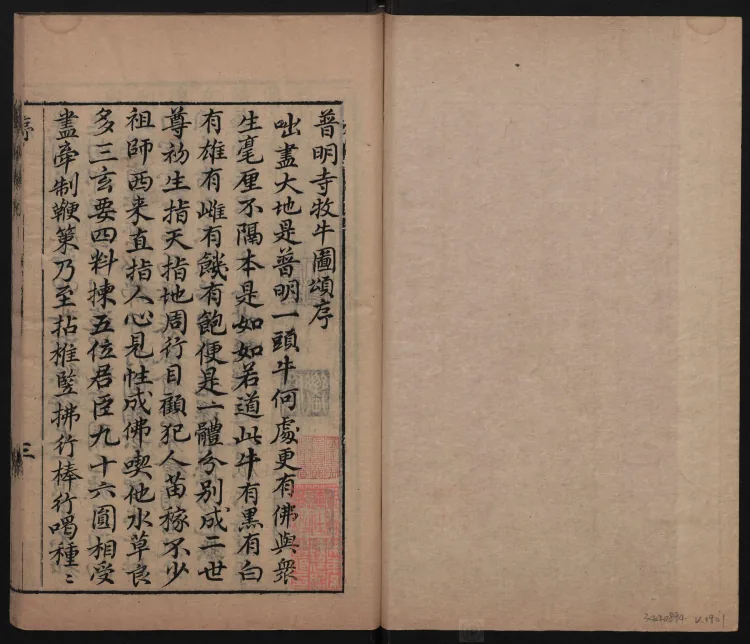 普明寺牧牛圖頌序
咄盡大地是普明一頭牛何處更有佛與衆
生毫厘不隔本是如如若道此牛有黑有白
有雄有雌有饑有飽便是一體分別成二世
尊初生指天指地周行目顧犯人苗稼不少
祖師西来直指人心見性成佛喫他水草良
多三玄要四料揀五位君臣九十六圓相受
盡牽制鞭策乃至拈椎竪拂行棒行喝種〻
序
三